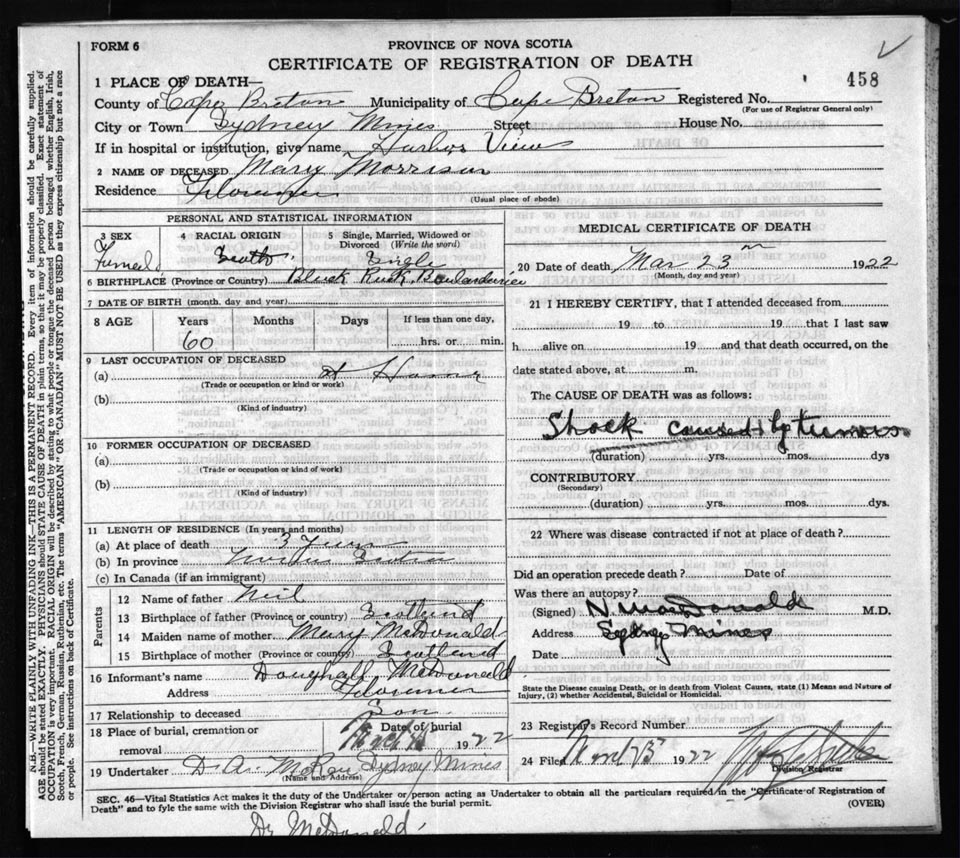 FORM 6
PROVINCE OF NOVA SCOTIA
CERTIFICATE OF REGISTRATION OF DEATH
458
1 PLACE OF DEATH—
County of Cape Breton Municipality of Cape Breton Registered No.
(For use of Registrar General only)
City or Town Sydney Mines Street House No.
If in hospital or institution, give name Harbor View
2 NAME OF DECEASED Mary Morrison
Residence Florence
(Usual place of abode)
PERSONAL AND STATISTICAL INFORMATION
3 SEX 4 RACIAL ORIGIN 5 Single, Married, Widowed or
Divorced (Write the word)
Female Scotch Single
6 BIRTHPLACE (Province or Country) Black Rock, Boularderie
7 DATE OF BIRTH (month, day and year)
8 AGE Years Months Days If less than one day,
60 hrs. or min.
9 LAST OCCUPATION OF DECEASED
(a) at Home
(Trade or occupation or kind or work)
(b)
(Kind of industry)
10 FORMER OCCUPATION OF DECEASED
(a)
(Trade or occupation or kind of work)
(b)
(Kind of industry)
11 LENGTH OF RESIDENCE (In years and months)
(a) At place of death 3 Years
(b) In province
(c) In Canada (if an immigrant)
Parents
12 Name of father Neil
13 Birthplace of father (Province or country) Scotland
14 Maiden name of mother Mary McDonald
15 Birthplace of mother (Province or country) Scotland
16 Informant's name McDonald
Address Florence
17 Relationship to deceased Son
18 Place of burial, cremation or Date of burial
removal 1922
19 Undertaker McRae Sydney Mines
(Name and Address)
MEDICAL CERTIFICATE OF DEATH
20 Date of death Mar 23 1922
(Month, day and year)
21 I HEREBY CERTIFY, that I attended deceased from
19 to 19 that I last saw
h alive on 19 and that death occurred, on the
date stated above, at m.
The CAUSE OF DEATH was as follows:
Shock caused by tumors
(duration) yrs. mos. dys
CONTRIBUTORY
(Secondary)
(duration) yrs. mos. dys.
22 Where was disease contracted if not at place of death?
Did an operation precede death? Date of
Was there an autopsy?
(Signed) N MacDonald M.D.
Address Sydney Mines
Date
State the Disease causing Death, or in death from Violent Causes, state (1) Means and Nature of
Injury, (2) whether Accidental, Suicidal or Homicidal.
23 Registrar's Record Number
24 Filed 1922
Division Registrar
SEC. 46—Vital Statistics Act makes it the duty of the Undertaker or person acting as Undertaker to obtain all the particulars required in the "Certificate of Registration of
Death" and to fyle the same with the Division Registrar who shall issue the burial permit.
(OVER)
Dr McDonald.
N.B.—WRITE PLAINLY, WITH UNFADING INK.—THIS IS A PERMANENT RECORD. Every item of information should be carefully supplied.
AGE should be stated EXACTLY. PHYSICIANS should STATE CAUSE OF DEATH in plain terms, so that it may be properly classified. Exact statement of
OCCUPATION is very important. RACIAL ORIGIN will be described by stating to what people or tongue the deceased person belonged whether English, Irish,
Scotch, French, German, Russian, Ruthenian, etc. The terms "AMERICAN" OR "CANADIAN" MUST NOT BE USED as they express citizenship but not a race
or people. See instructions on back of Certificate.